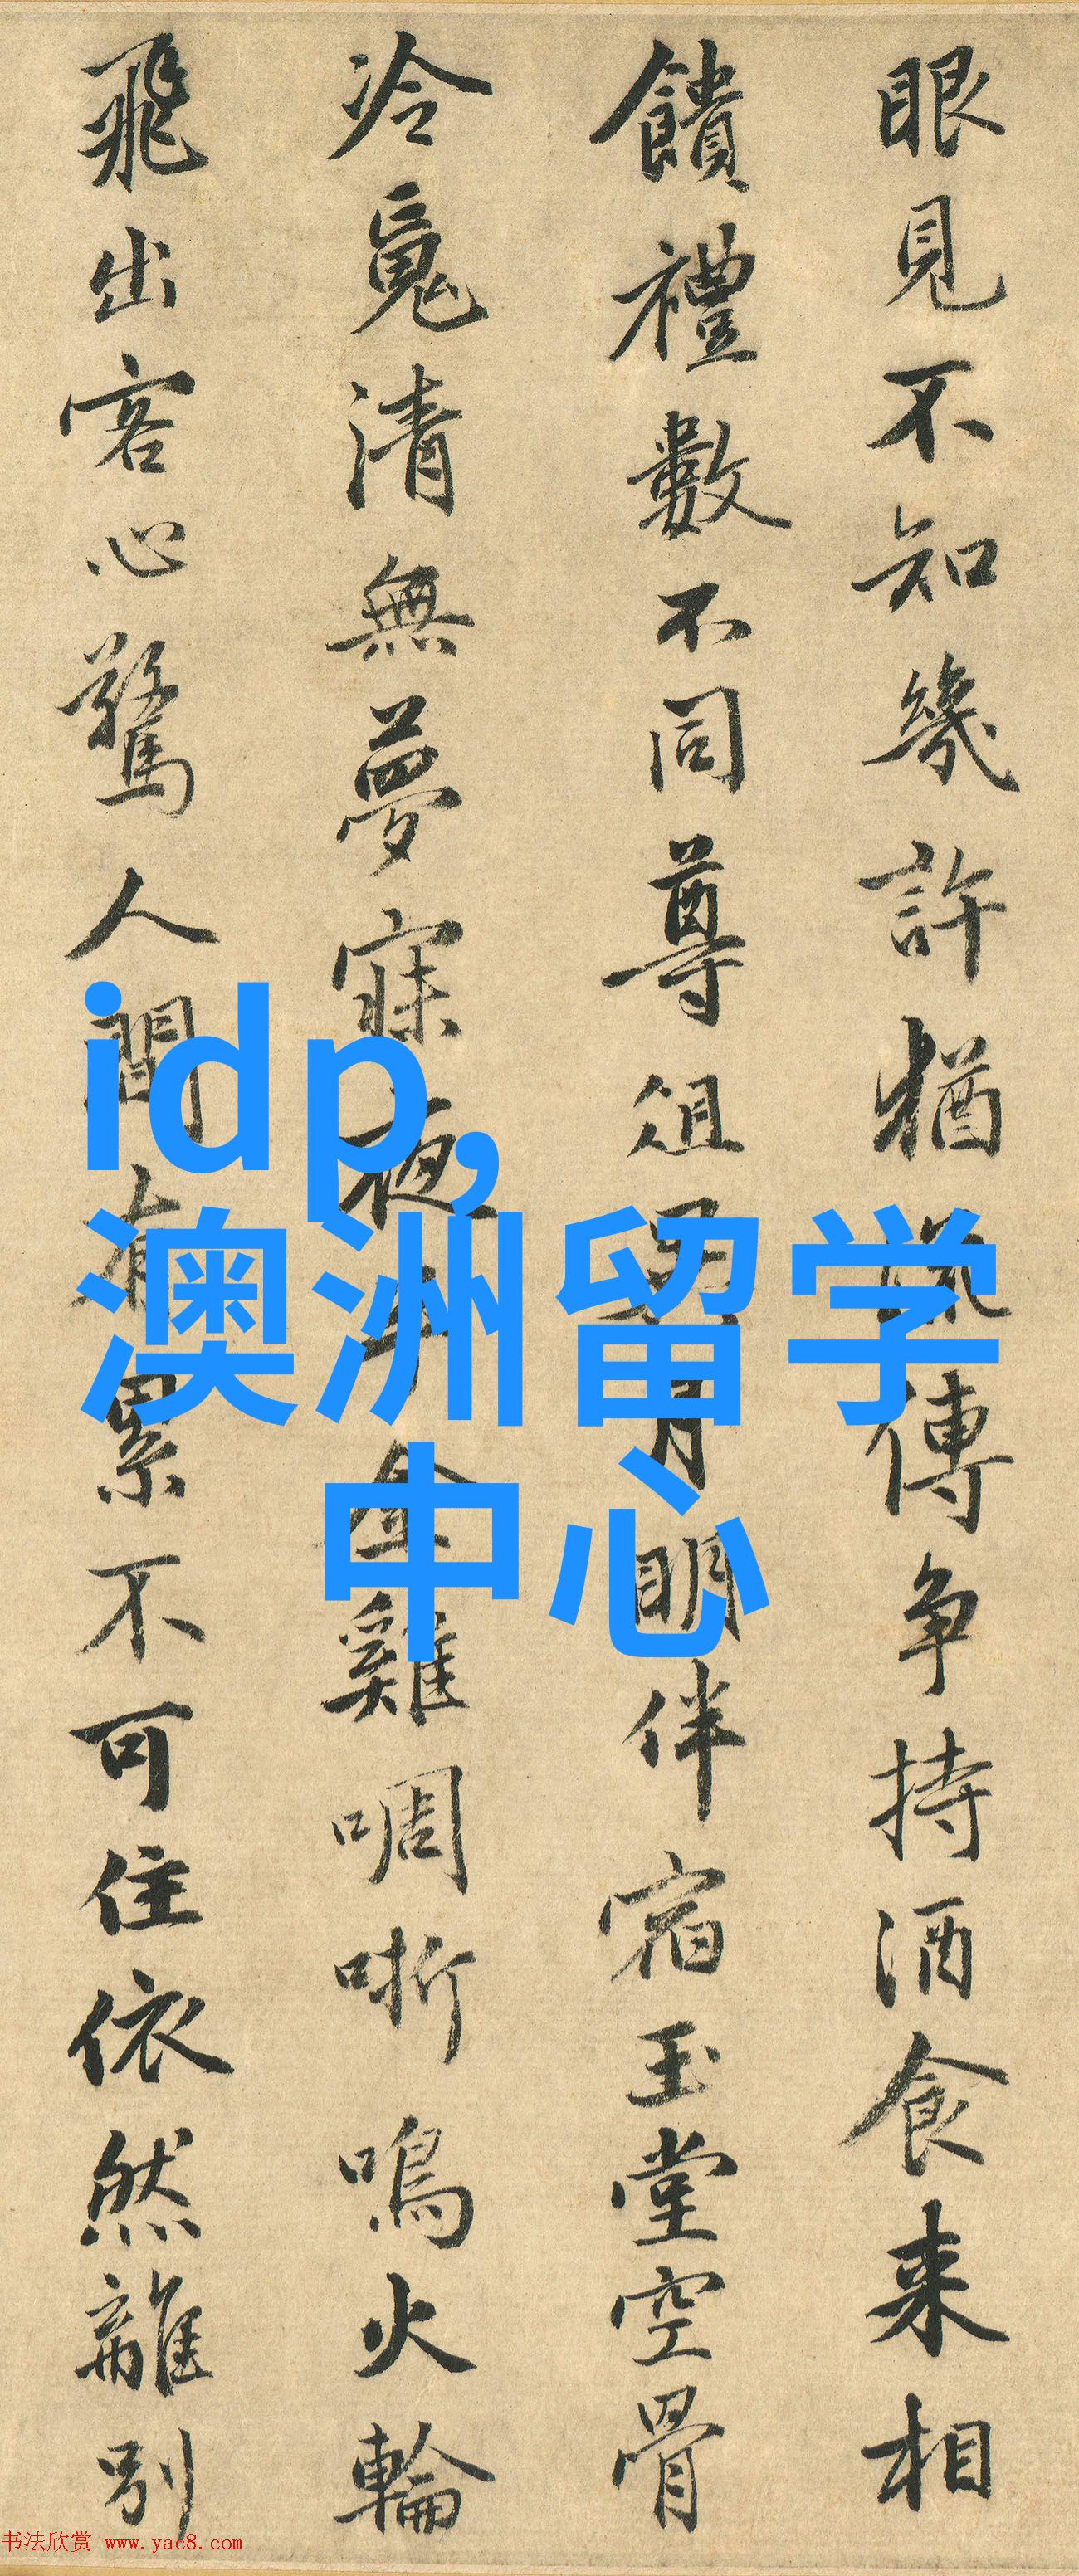 眼見不知幾許猶流傳争持酒食来相
饋禮數不同尊俎異月明伴宿玉堂空骨
冷魂清無夢寐夜半金雞啁哳鳴火輪
飛出客心驚人間有累不可住依然離別
idp,
澳洲留学
中心
书法欣赏 www.yac8.com